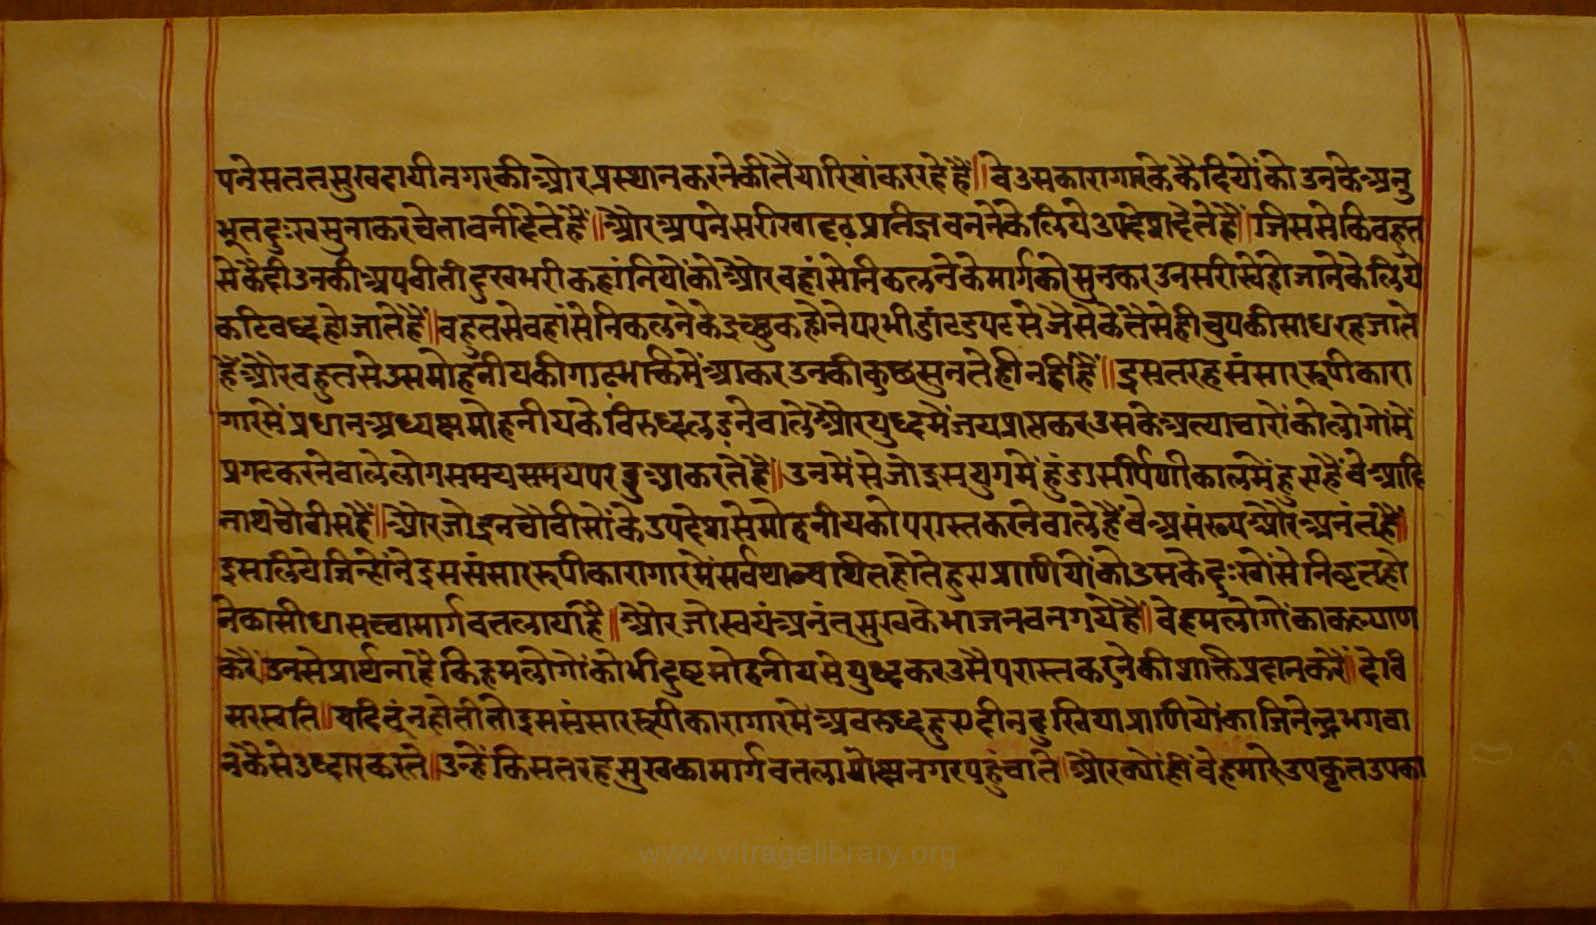 पनेसततसुखदायीनगरकीओरप्रस्थानकरनेकीतैयारियांकररहेहैं॥वेउसकारागारकेकैदियोंकोउनकेअनु
भूतदुःखसुनाकरचेतावनीदेतेहैं॥औरअपनेसरीखादृढ़प्रतिज्ञबननेकेलियेउपदेशदेतेहैं॥जिससेकिबहुत
सेकैदीउनकीआपबीतीदुखभरीकहांनियोंकोऔरवहांसेनिकलनेकेमार्गकोसुनकरउनसरीखेहोजानेकेलिये
कटिबध्दहोजातेहैं॥बहुतसेवहांसेनिकलनेकेइच्छुकहोनेपरभीडांटडपटसेजैसेकेतैसेहीचुपकीसाधरहजाते
हैंऔरबहुतसेउसमोहनीयकीगाढभक्तिमेंआकरउनकीकुछसुनतेहीनहींहैं॥इसतरहसंसाररूपीकारा
गारमेंप्रधानअध्यक्षमोहनीयकेविरुध्दलड़नेवालेऔरयुध्दमेंजयप्राप्तकरउसकेअत्याचारोंकोलोगोंमें
प्रगटकरनेवालेलोगसमयसमयपरहुआकरतेहैं॥उनमेंसेजोइसयुगमेंहुंडासर्पिणीकालमेंहुएहैंवेआदि
नाथचौवीसहैं॥औरजोइनचौवीसोंकेउपदेशसेमोहनीयकोपरास्तकरनेवालेहैंवेअसंख्यऔरअनंतहैं॥
इसलियेजिन्होंनेइससंसाररुपीकारागारमेंसर्वथाव्यथितहोतेहुएप्राणियोंकोउसकेदुःखोंसेनिवृतहो
नेकासीधासच्चामार्गबतलायाहै॥औरजोस्वयंअनंतसुखकेभाजनबनगयेहैं॥वेहमलोगोंकाकल्याण
करें॥उनसेप्रार्थनाहैकिहमलोगोंकोभीदुष्टमोहनीयसेयुध्दकरउसैपरास्तकरनेकीशक्तिप्रदानकरें॥देवि
सरस्वति॥यदितूंनहोतीतोइससंसाररूपीकारागारमेंअवरुध्दहुएदीनदुखियाप्राणियोंकाजिनेन्द्रभगवा
नकैसेउध्दारकरते॥उन्हेंकिसतरहसुखकामार्गबतलामोक्षनगरपहुंचाते॥औरक्योंहीवेहमारेउपकृतउपका
www.vitragelibrary.org